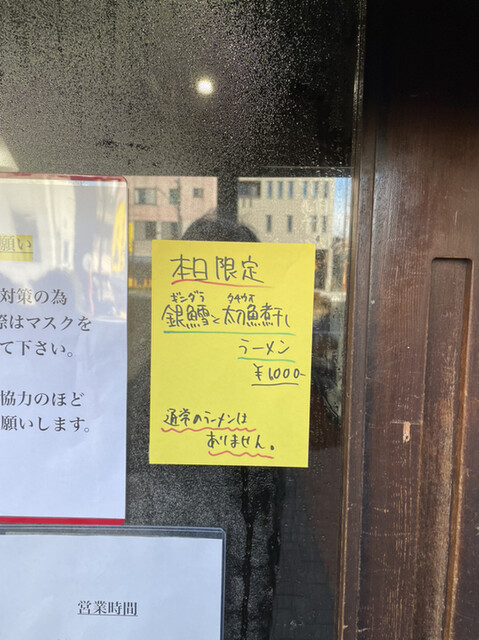 願い
対策の為
際はマスクを
て下さい。
協力のほど
願いします。
本日限定
ギンダラ タチウオ
銀鱈と太刀魚煮干し
ラーメン
¥1,000-
通常のラーメンは
ありません。
営業時間